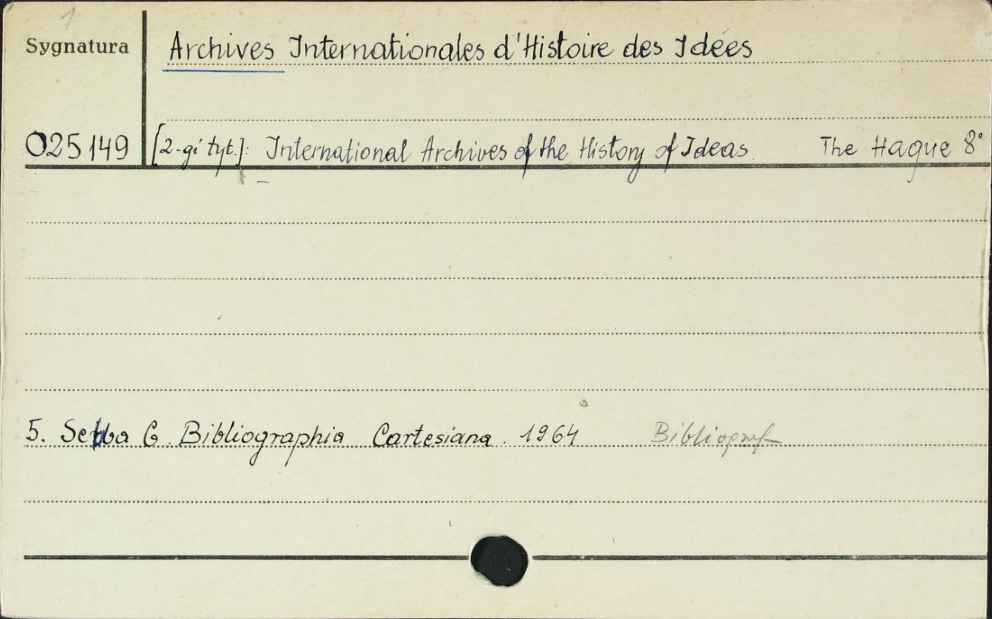 1
Sygnatura Archives Internationales d'Histoire des Idées
025149 [2-gi tyt.]: International Archives of the History of Ideas. The Hague 8°
5. Sebba G. Bibliographia Cartesiana. 1964 Bibliograf